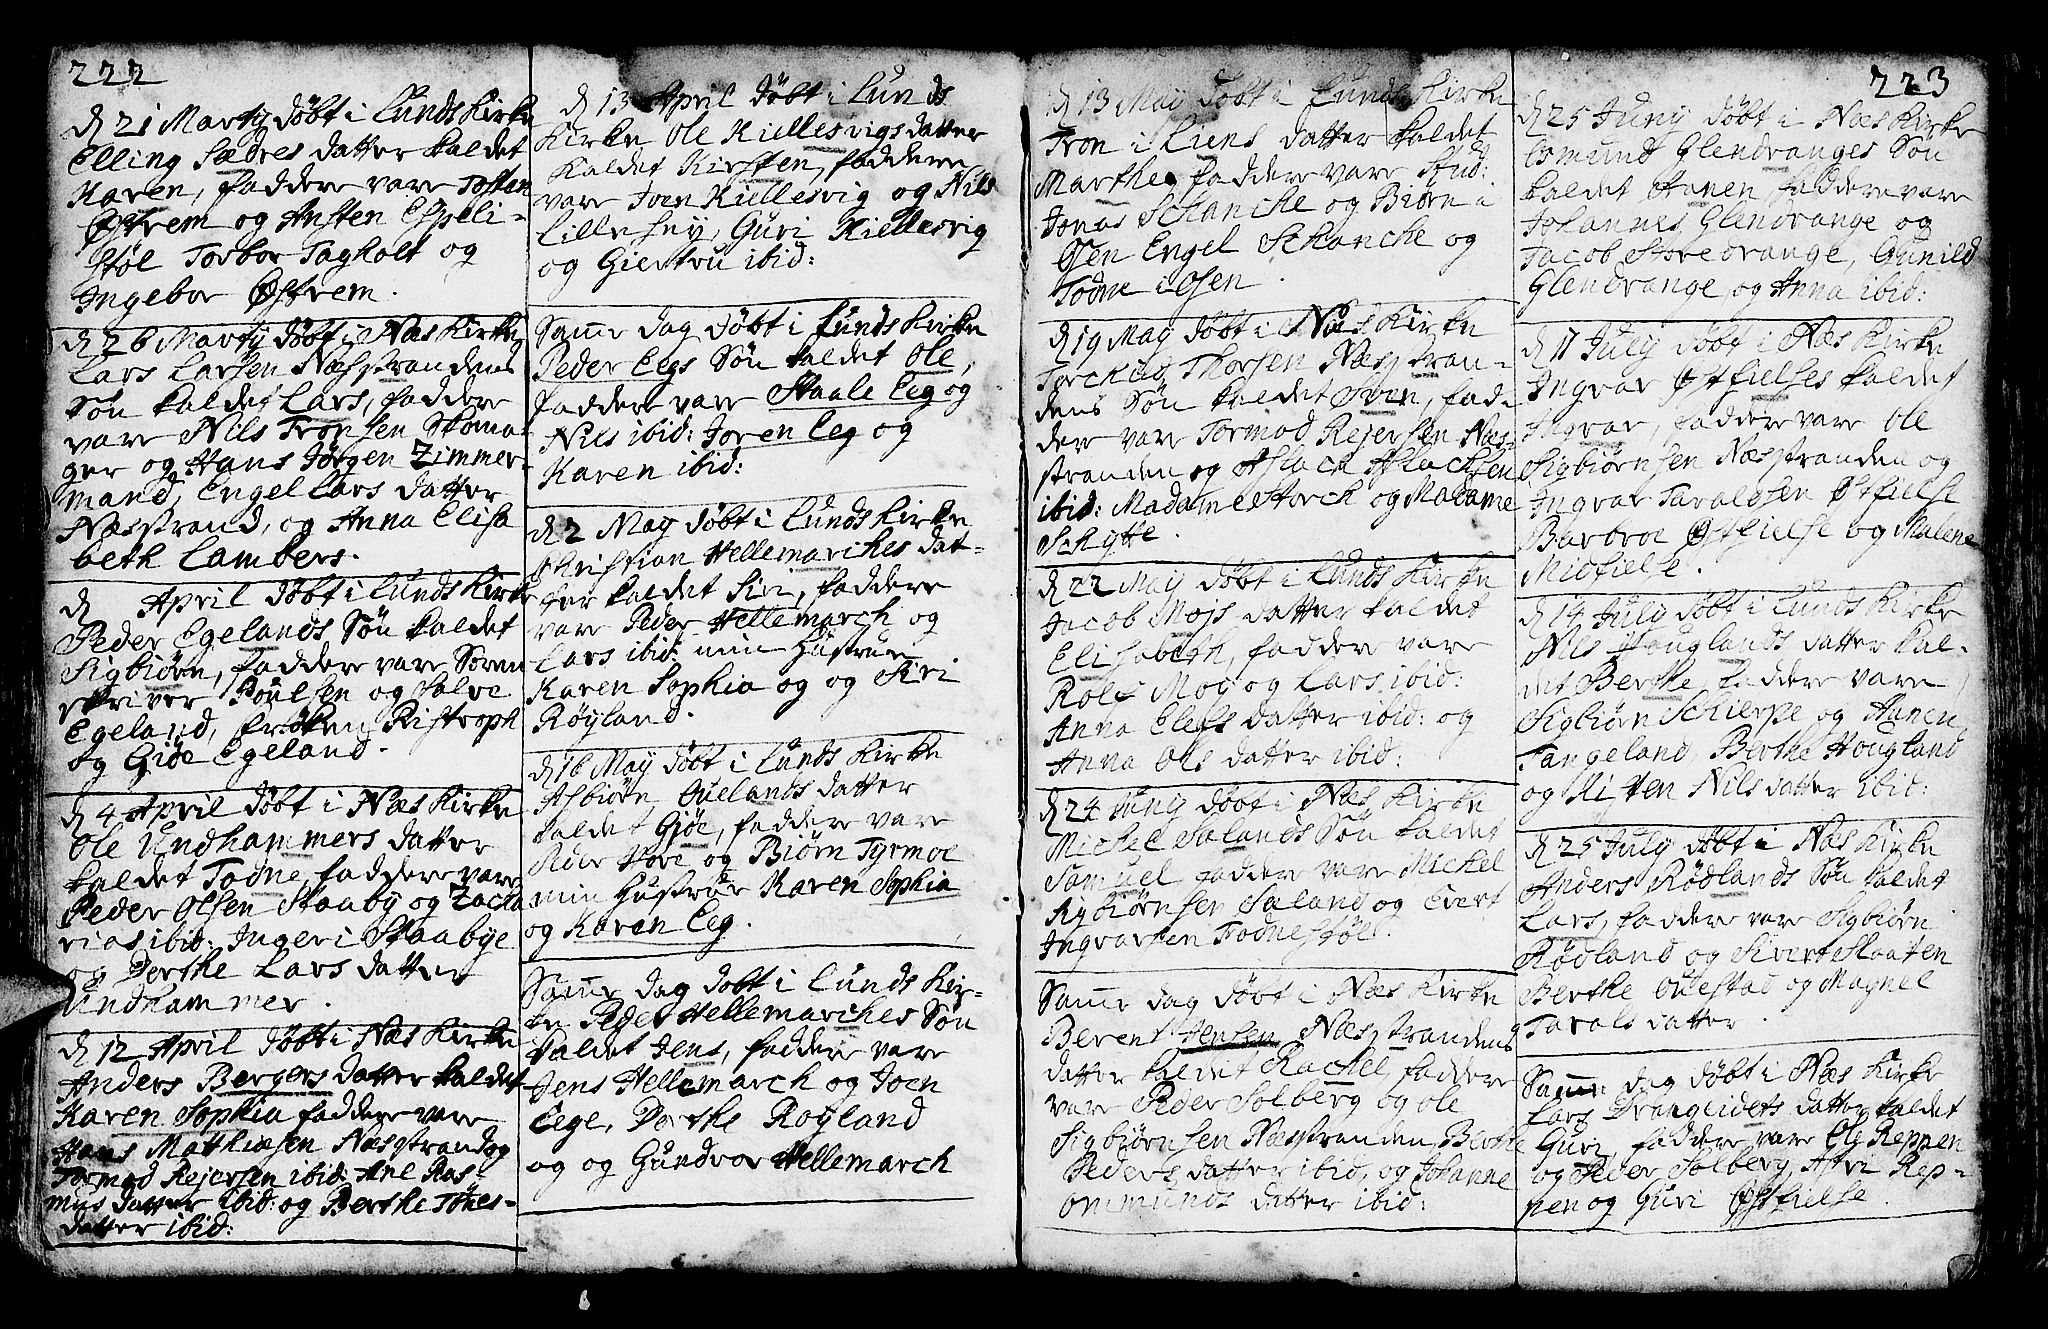 222
d 21 Marty døbt i Lunds Kirke
Elling Sædres datter kaldet
Karen, faddere vare Tosten
Østrem og Ansten Espeli-
støl Torbor Tagholt og
Ingebor Østrem.
d 26 Marty døbt i Næs Kirke
Lars Larsen Næsstrandens
Søn kaldet Lars, faddere
vare Nils Tronsen Skoma-
ger og Hans Jørgen Zimmer-
mand, Engel Lars datter
Næsstrand, og Anna Elisa
beth Lambers.
d April døbt i Lunds Kirke
Peder Egelands Søn kaldet
Sigbiørn, faddere vare Soren
skriver Poulsen og Salve
Egeland, frøken Ristroph
og Giøe Egeland.
d 4 April døbt i Næs Kirke
Ole Undhammers datter
kaldet Todne, faddere vare
Peder Olsen Staaby og Zacha
rias ibid: Inger i Staabye
og Berthe Lars datter
Undhammer.
d 12 April døbt i Næs Kirke
Anders Bergers datter kaldet
Karen Sophia faddere vare
Hans Mathiasen Næsstrand og
Tormod Rejersen ibid: Ane Ras-
mus datter ibid: og Berthe Tønes-
datter ibid:
d 13 April døbt i Lunds
Kirke Ole Kiellesvigs datter
kaldet Kirsten, faddere
vare Joen Kiellesvig og Nils
Lillesey, Guri Kiellesvig
og Giertru ibid:
Samme dag døbt i Lunds Kirke
Peder Eegs Søn kaldet Ole,
faddere vare Staale Eeg og
Nils ibid: Joren Eeg og
Karen ibid:
d 2 May døbt i Lunds Kirke
Christian Hellemarches dat-
ter kaldet Siri, faddere
vare Peder Hellemarch og
Lars ibid: min Hustrue
Karen Sophia og og Siri
Røyland.
d 16 May døbt i Lunds Kirke
Asbiørn Ouelands datter
kaldet Giøe, faddere vare
Peder Hove og Biørn Tyrmoe
min Hustrue Karen Sophia
og Karen Eeg.
Samme dag døbt i Lunds Kir-
ke Peder Hellemarches Søn
kaldet Jens, faddere vare
Jens Hellemarch og Joen
Eege, Berthe Røyland
og og Gundvor Hellemarch
223
d 13 May døbt i Lunds Kirke
Tron i Liens datter kaldet
Marthe, faddere vare Stud:
Jonas Schanche og Biørn i
Øsen Engel Schanche og
Todne i Øsen.
d 19 May døbt i Næs Kirke
Torchild Thorsen Næsstran-
dens Søn kaldet Sven, fad-
dere vare Tormod Rejersen Næs-
stranden og Aslach Aslachsen
ibid: Madame Storch og Madame
Schytte.
d 22 May døbt i Lunds Kirke
Jacob Mojs datter kaldet
Elisabeth, faddere vare
Rolf Moi og Lars ibid:
Anna Elefs datter ibid: og
Anna Ols datter ibid:
d 24 Juny døbt i Næs Kirke
Michel Salands Søn kaldet
Samuel faddere vare Michel
Sigbiørnsen Saland og Evert
Ingvarsen Todnestøl.
Samme dag døbt i Næs Kirke
Berent Jensen Næsstrandens
datter kaldet Rachel, faddere
vare Peder Solberg og Ole
Sigbiørnsen Næsstranden, Berthe
Peders datter ibid, og Johanne
Ommunds datter ibid:
d 25 Juny døbt i Næs Kirke
Osmund Glendranges Søn
kaldet Aanen faddere vare
Johannes Glendrange og
Jacob Storedrange, Gunild
Glendrange og Anna ibid:
d 11 July døbt i Næs Kirke
Ingvar Østfielses kaldet
Ingvar, faddere vare Ole
Sigbiørnsen Næsstranden og
Ingvar Taraldsen Østfielse
Barbroe Østfielse og Malene
Midfielse.
d 14 July døbt i Lunds Kirke
Nils Houglands datter kal-
det Berthe, faddere vare
Sigbiørn Schierpe og Aanen
Tangeland, Berthe Hougland
og Kisten Nils datter ibid:
d 25 July døbt i Næs Kirke
Anders Rødlands Søn kaldet
Lars, faddere vare Sigbiørn
Rødland og Sivert Slaaten
Berthe Ouestad og Magnel
Tarals datter.
Samme dag døbt i Næs Kirke
Lars Drangeidets datter kaldet
Guri, faddere vare Elg Reppen
og Peder Solberg, Atri Rep-
pen og Guri Østfielse.